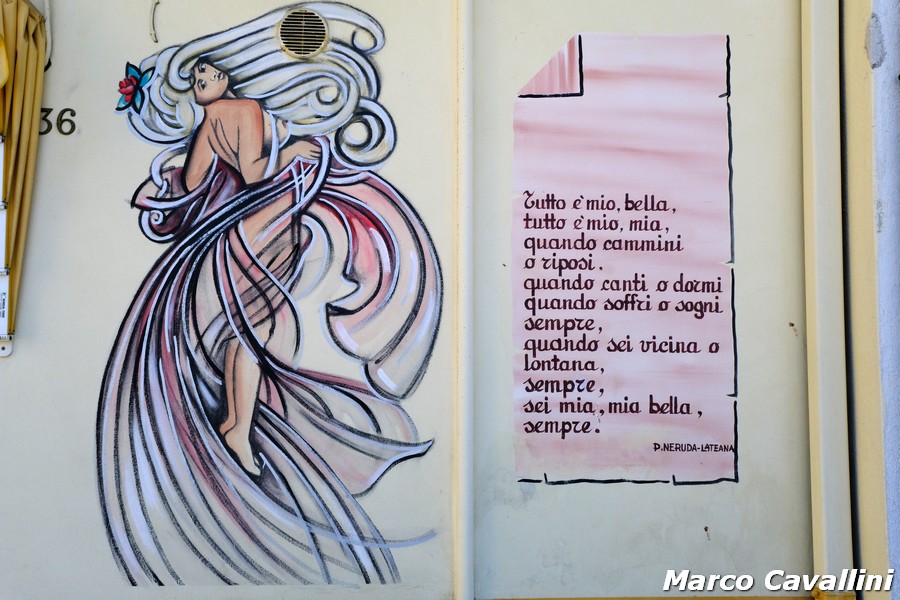 36
Tutto è mio, bella,
tutto è mio, mia,
quando cammini
o riposi.
quando canti o dormi
quando soffri o sogni
sempre,
quando sei vicina o
lontana,
sempre,
sei mia, mia bella,
sempre.
P. NERUDA-LATEANA
Marco Cavallini